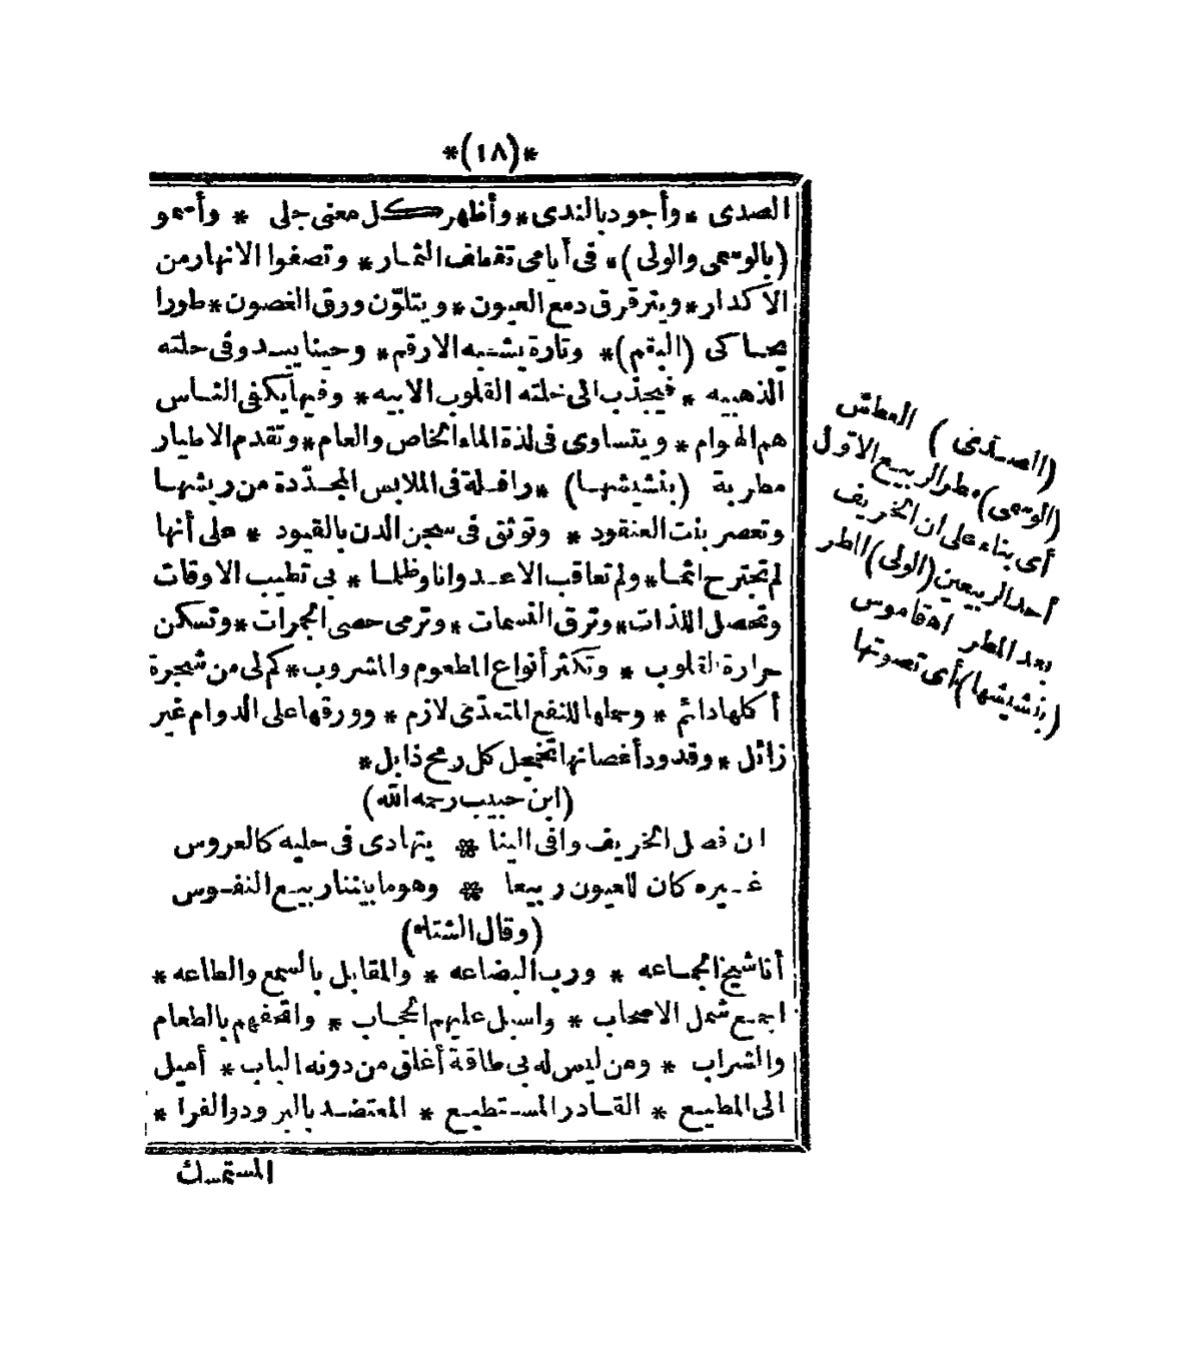 *(١٨)*
الصدى * وأجود بالندى * وأظهر كل معنى جلى * وأسمو
(بالوسمى والولى) * فى أيامى تقطف الثمار * وتصفوا الانهار من
الأكدار * ويترقرق دمع العيون * ويتلوّن ورق الغصون * طورا
يحاكى (البقم) * وتارة يشبه الارقم * وحينا يبدو فى حلته
الذهبيه * فيجذب الى خلته القلوب الابيه * وفيها يكفى الناس
هم الهوام * ويتساوى فى لذة الماء الخاص والعام * وتقدم الاطيار
مطربة (بنشيشها) * رافلة فى الملابس المجدّدة من ريشها
وتعصر بنت العنقود * وتوثق فى سجن الدن بالقيود * على أنها
لم تجترح اثما * ولم تعاقب الا عدوانا وظلما * بى تطيب الاوقات
وتحصل اللذات * وترق النسمات * وترمى حصى الجمرات * وتسكن
حرارة القلوب * وتكثر أنواع المطعوم والمشروب * كم لى من شجرة
أكلها دائم * وحملها للنفع المتعدّى لازم * وورقها على الدوام غير
زائل * وقدود أغصانها تخجل كل رمح ذابل *
(ابن حبيب رحمه الله)
ان فصل الخريف وافى الينا * يتهادى فى حليه كالعروس
غيره كان للعيون ربيعا * وهو ما بيننا ربيع النفوس
(وقال الشتاء)
أنا شيخ الجماعه * ورب البضاعه * والمقابل بالسمع والطاعه *
اجمع شمل الاصحاب * واسبل عليهم الحجاب * واتحفهم بالطعام
والشراب * ومن ليس له بى طاقة أغلق من دونه الباب * أميل
الى المطيع * القادر المستطيع * المعتضد بالبرود والفرا *
المستمسك
(الصدى) العطش
(الوسمى) مطر الربيع الاوّل
أى بناء على ان الخريف
أحد الربيعين (الولى) المطر
بعد المطر اهـ قاموس
(بنشيشها) أى تصوتها